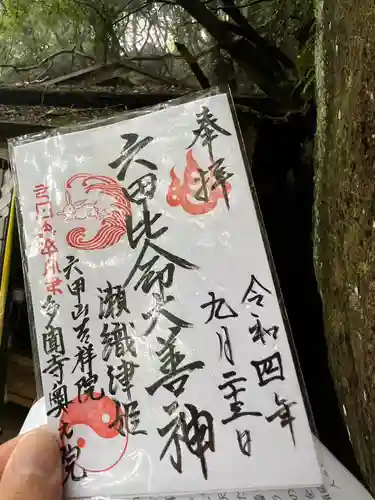 奉拝
令和四年
九月二十五日
六甲比命大善神
瀬織津姫
六甲山吉祥院
多聞寺奥之院